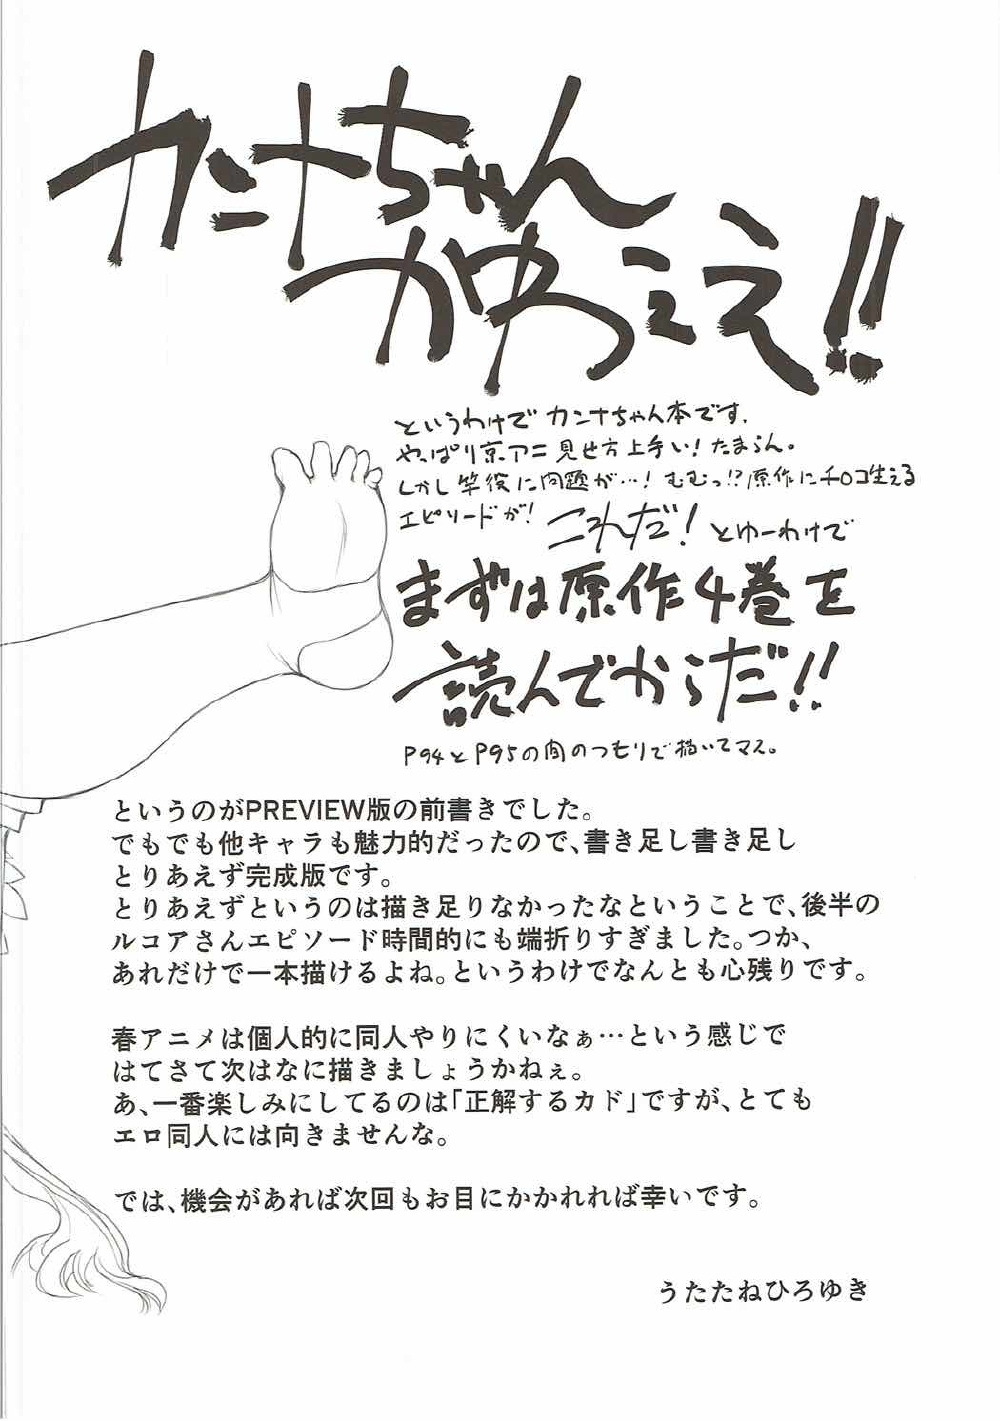 カンナちゃん
かゆっええ!!
というわけでカンナちゃん本です、
やっぱり京アニ見せ方上手い！たまらん。
しかし竿役に問題が…！むむっ!?原作にチ○コ生える
エピソードが！これだ！とゆーわけで
まずは原作4巻を
読んでからだ!!
P94とP95の間のつもりで描いてマス。
というのがPREVIEW版の前書きでした。
でもでも他キャラも魅力的だったので、書き足し書き足し
とりあえず完成版です。
とりあえずというのは描き足りなかったなということで、後半の
ルコアさんエピソード時間的にも端折りすぎました。つか、
あれだけで一本描けるよね。というわけでなんとも心残りです。
春アニメは個人的に同人やりにくいなぁ…という感じで
はてさて次はなに描きましょうかねぇ。
あ、一番楽しみにしてるのは「正解するカド」ですが、とても
エロ同人には向きませんな。
では、機会があれば次回もお目にかかれれば幸いです。
うたたねひろゆき